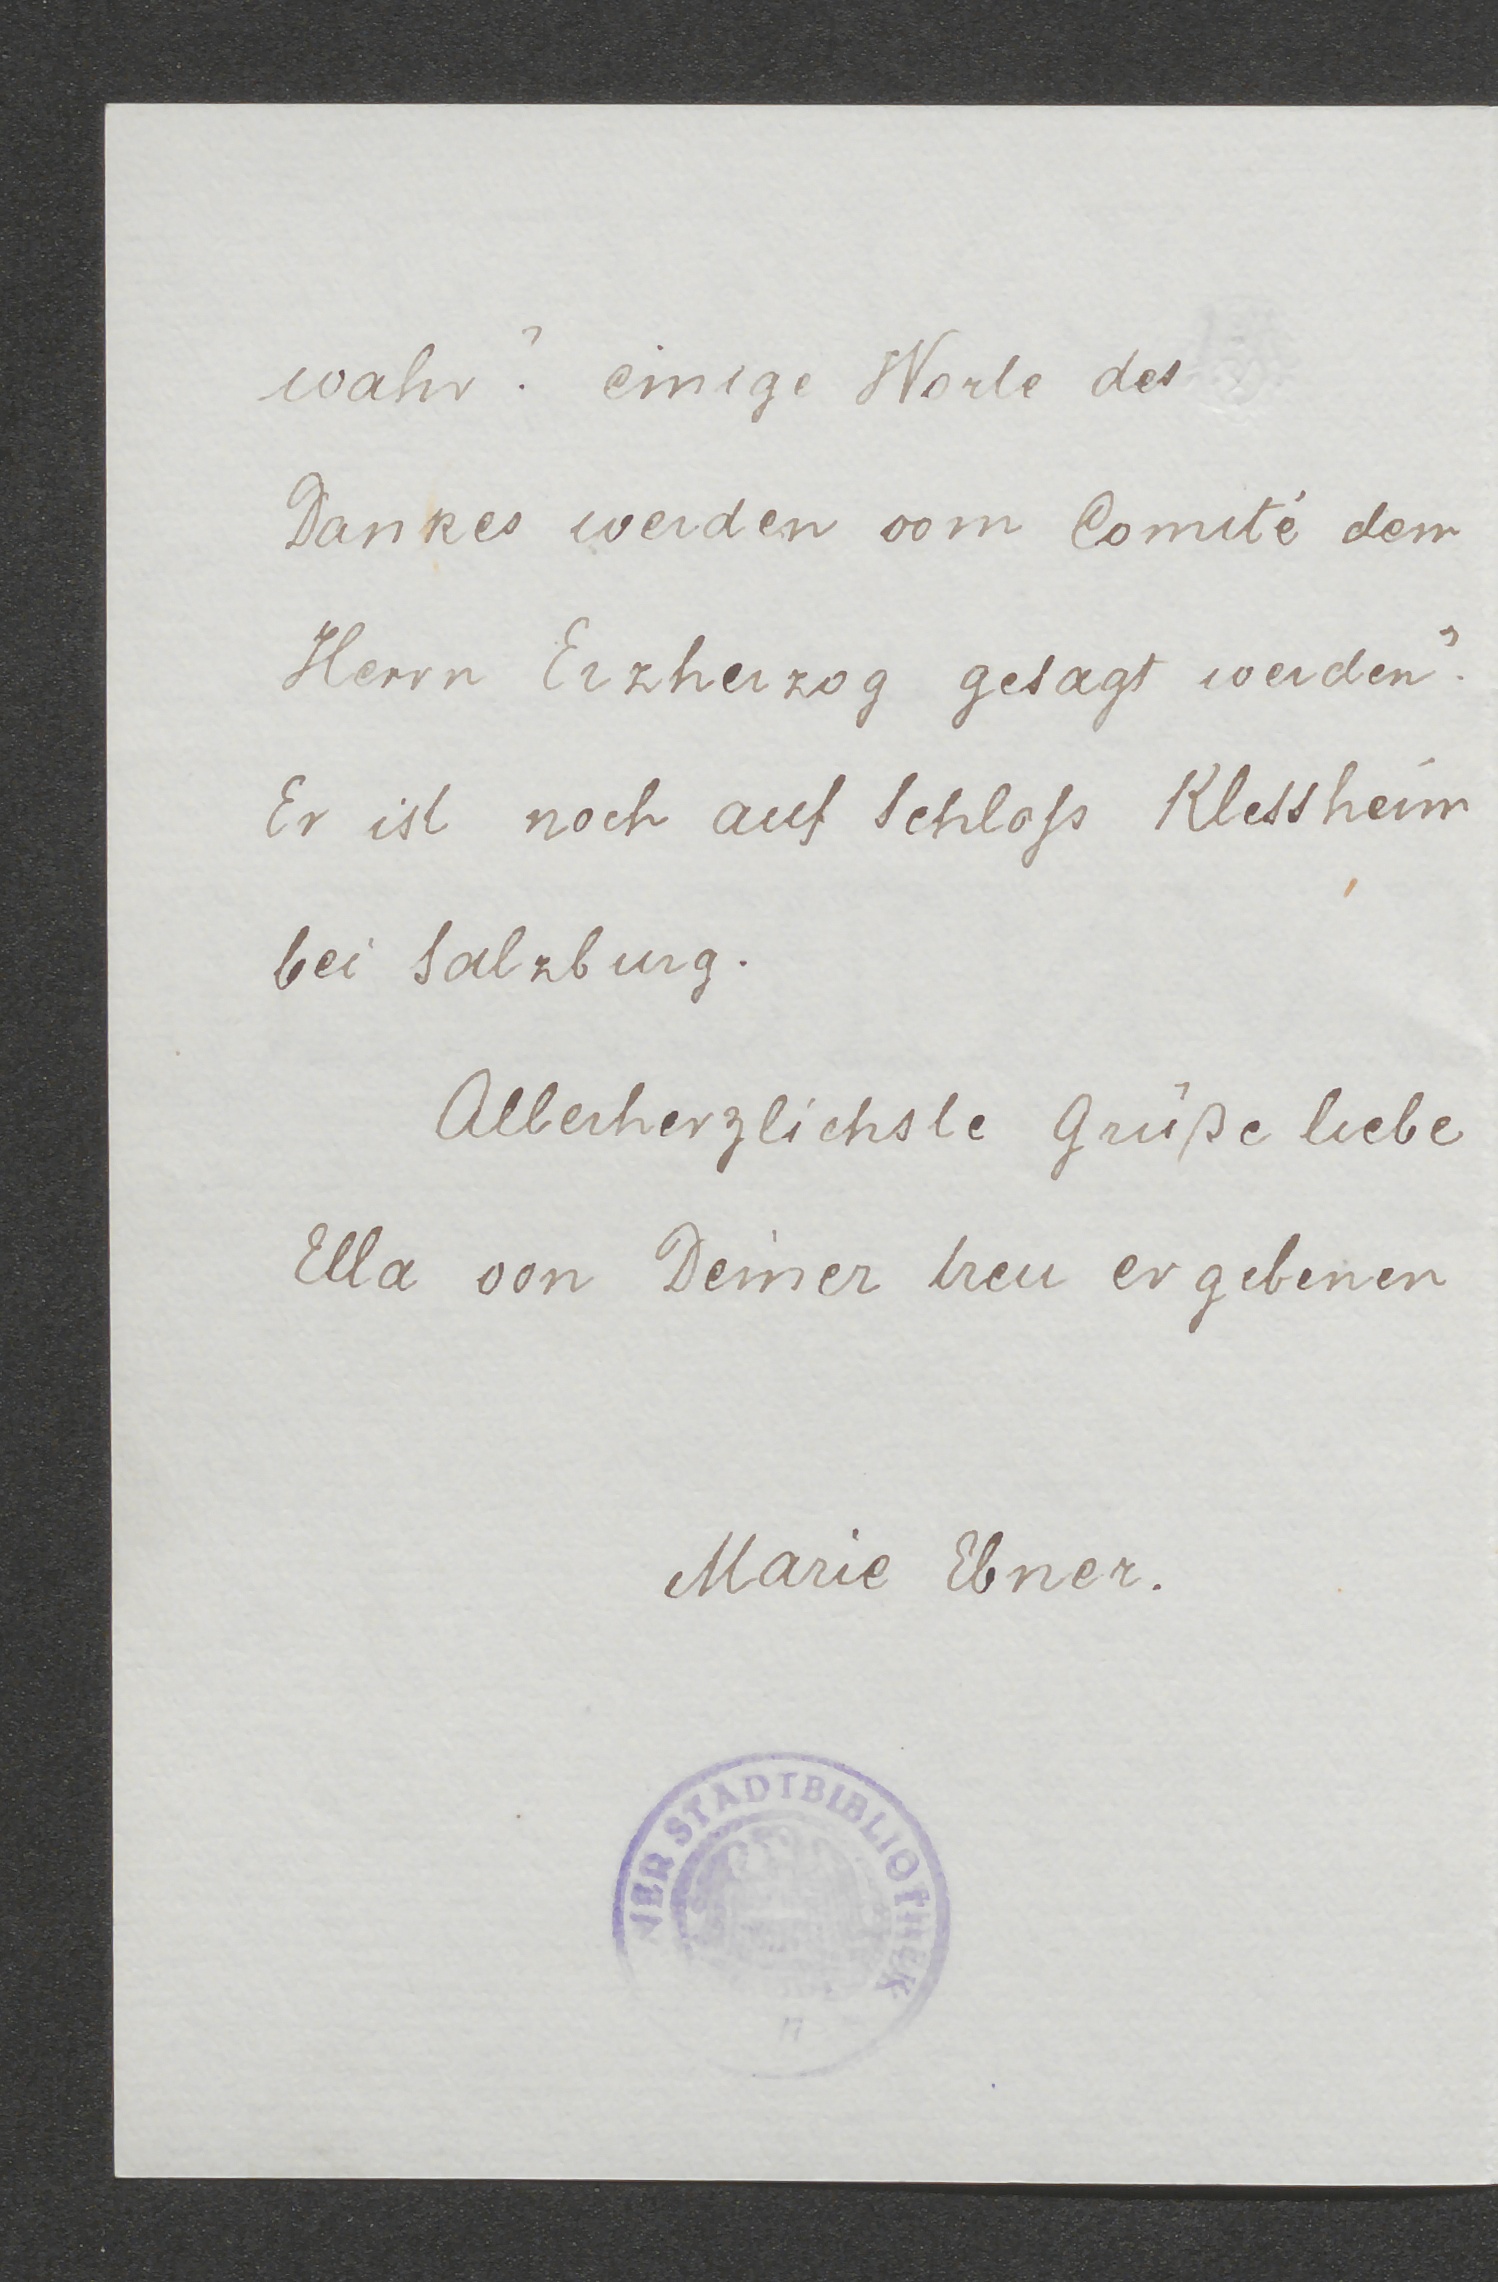 wahr? einige Worte des
Dankes werden vom Comité dem
Herrn Erzherzog gesagt werden?
Er ist noch auf Schloß Klessheim
bei Salzburg.
Allerherzlichste Grüße liebe
Ella von Deiner treu ergebenen
Marie Ebner.
NER STADTBIBLIOTHEK